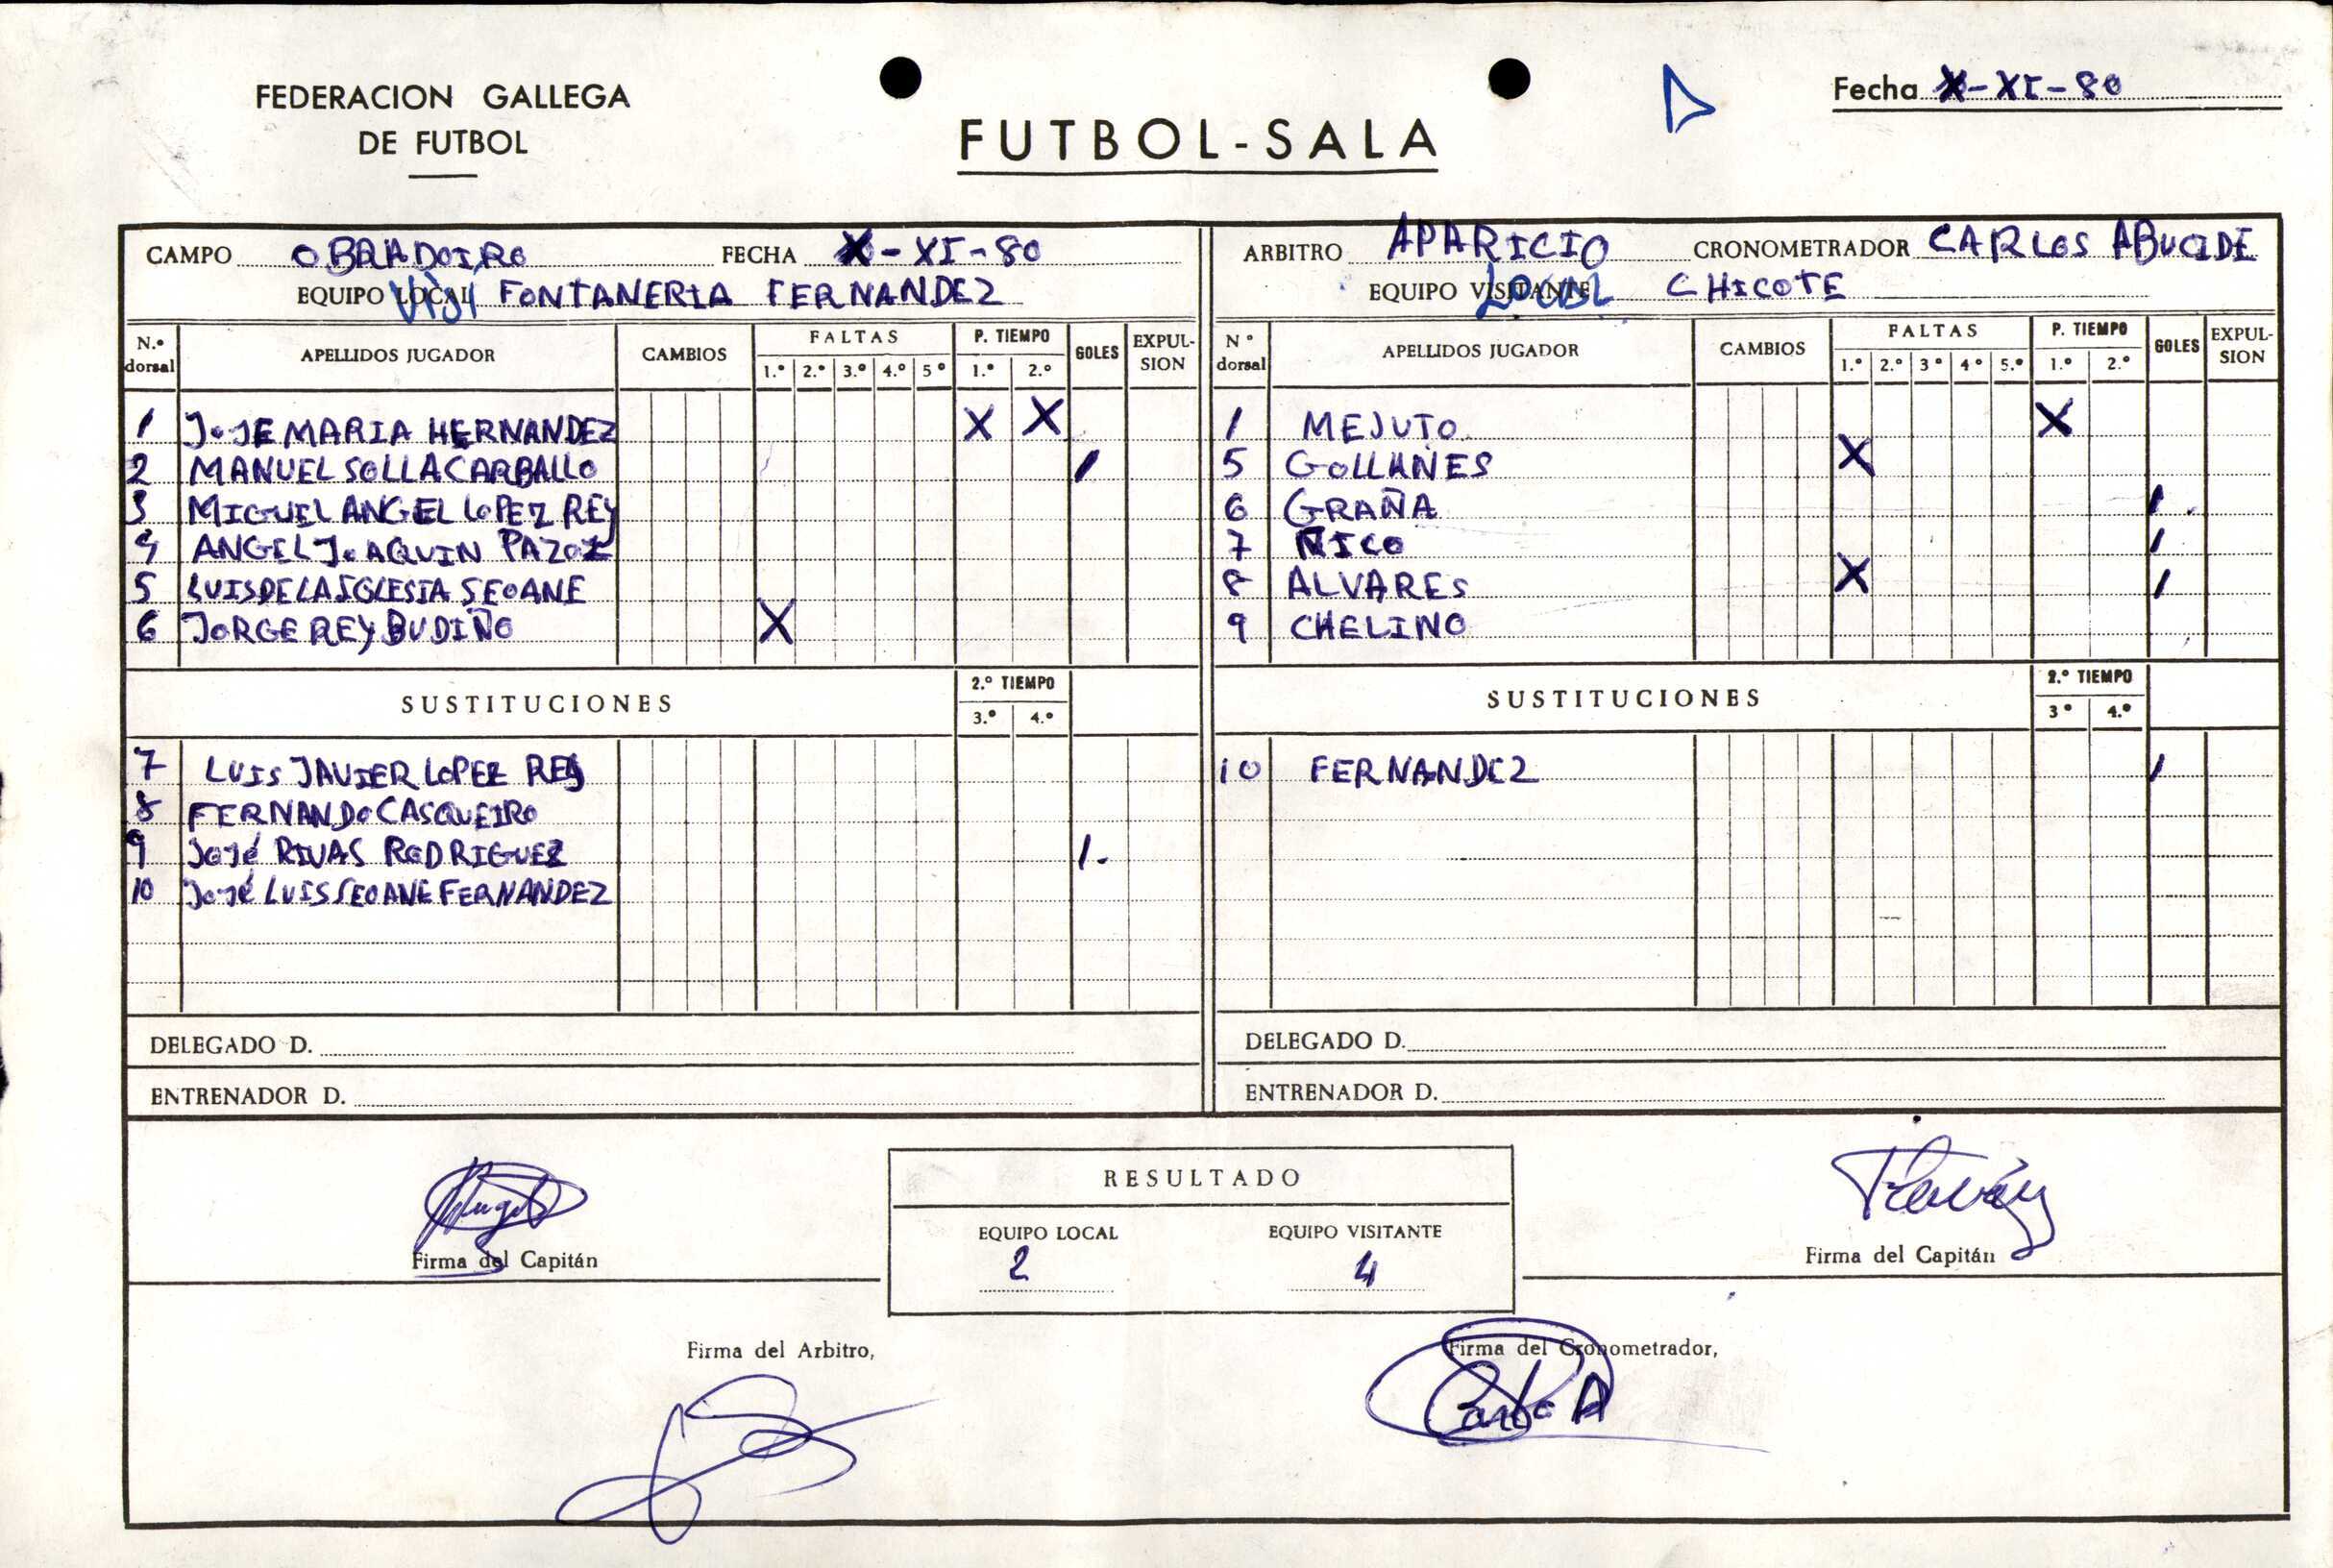 FEDERACION GALLEGA
DE FUTBOL
FUTBOL-SALA
Fecha X-XI-80
CAMPO OBRADOIRO FECHA X-XI-80
EQUIPO LOCAL VISI FONTANERIA FERNANDEZ
N.º dorsal APELLIDOS JUGADOR CAMBIOS FALTAS 1.º 2.º 3.º 4.º 5º P. TIEMPO 1.º 2.º GOLES EXPUL-SION
1 JOSE MARIA HERNANDEZ X X
2 MANUEL SOLLA CARBALLO 1
3 MIGUEL ANGEL LOPEZ REY
4 ANGEL JOAQUIN PAZOZ
5 LUIS DE LA IGLESIA SEOANE
6 JORGE REY BUDIÑO X
SUSTITUCIONES 2.º TIEMPO 3.º 4.º
7 LUIS JAVIER LOPEZ REY
8 FERNANDO CASQUEIRO
9 José RIVAS RODRIGUEZ 1.
10 José LUIS SEOANE FERNANDEZ
DELEGADO D.
ENTRENADOR D.
ARBITRO APARICIO CRONOMETRADOR CARLOS ABUCIDE
EQUIPO VISITANTE LOCAL CHICOTE
Nº dorsal APELLIDOS JUGADOR CAMBIOS FALTAS 1.º 2.º 3º 4º 5.º P. TIEMPO 1.º 2.º GOLES EXPUL-SION
1 MEJUTO X
5 GOLLANES X
6 GRAÑA 1.
7 RICO 1
8 ALVARES X 1
9 CHELINO
SUSTITUCIONES 2.º TIEMPO 3º 4.º
10 FERNANDEZ 1
DELEGADO D.
ENTRENADOR D.
Firma del Capitán
RESULTADO
EQUIPO LOCAL EQUIPO VISITANTE
2 4
Firma del Capitán
Firma del Arbitro,
Firma del Cronometrador,